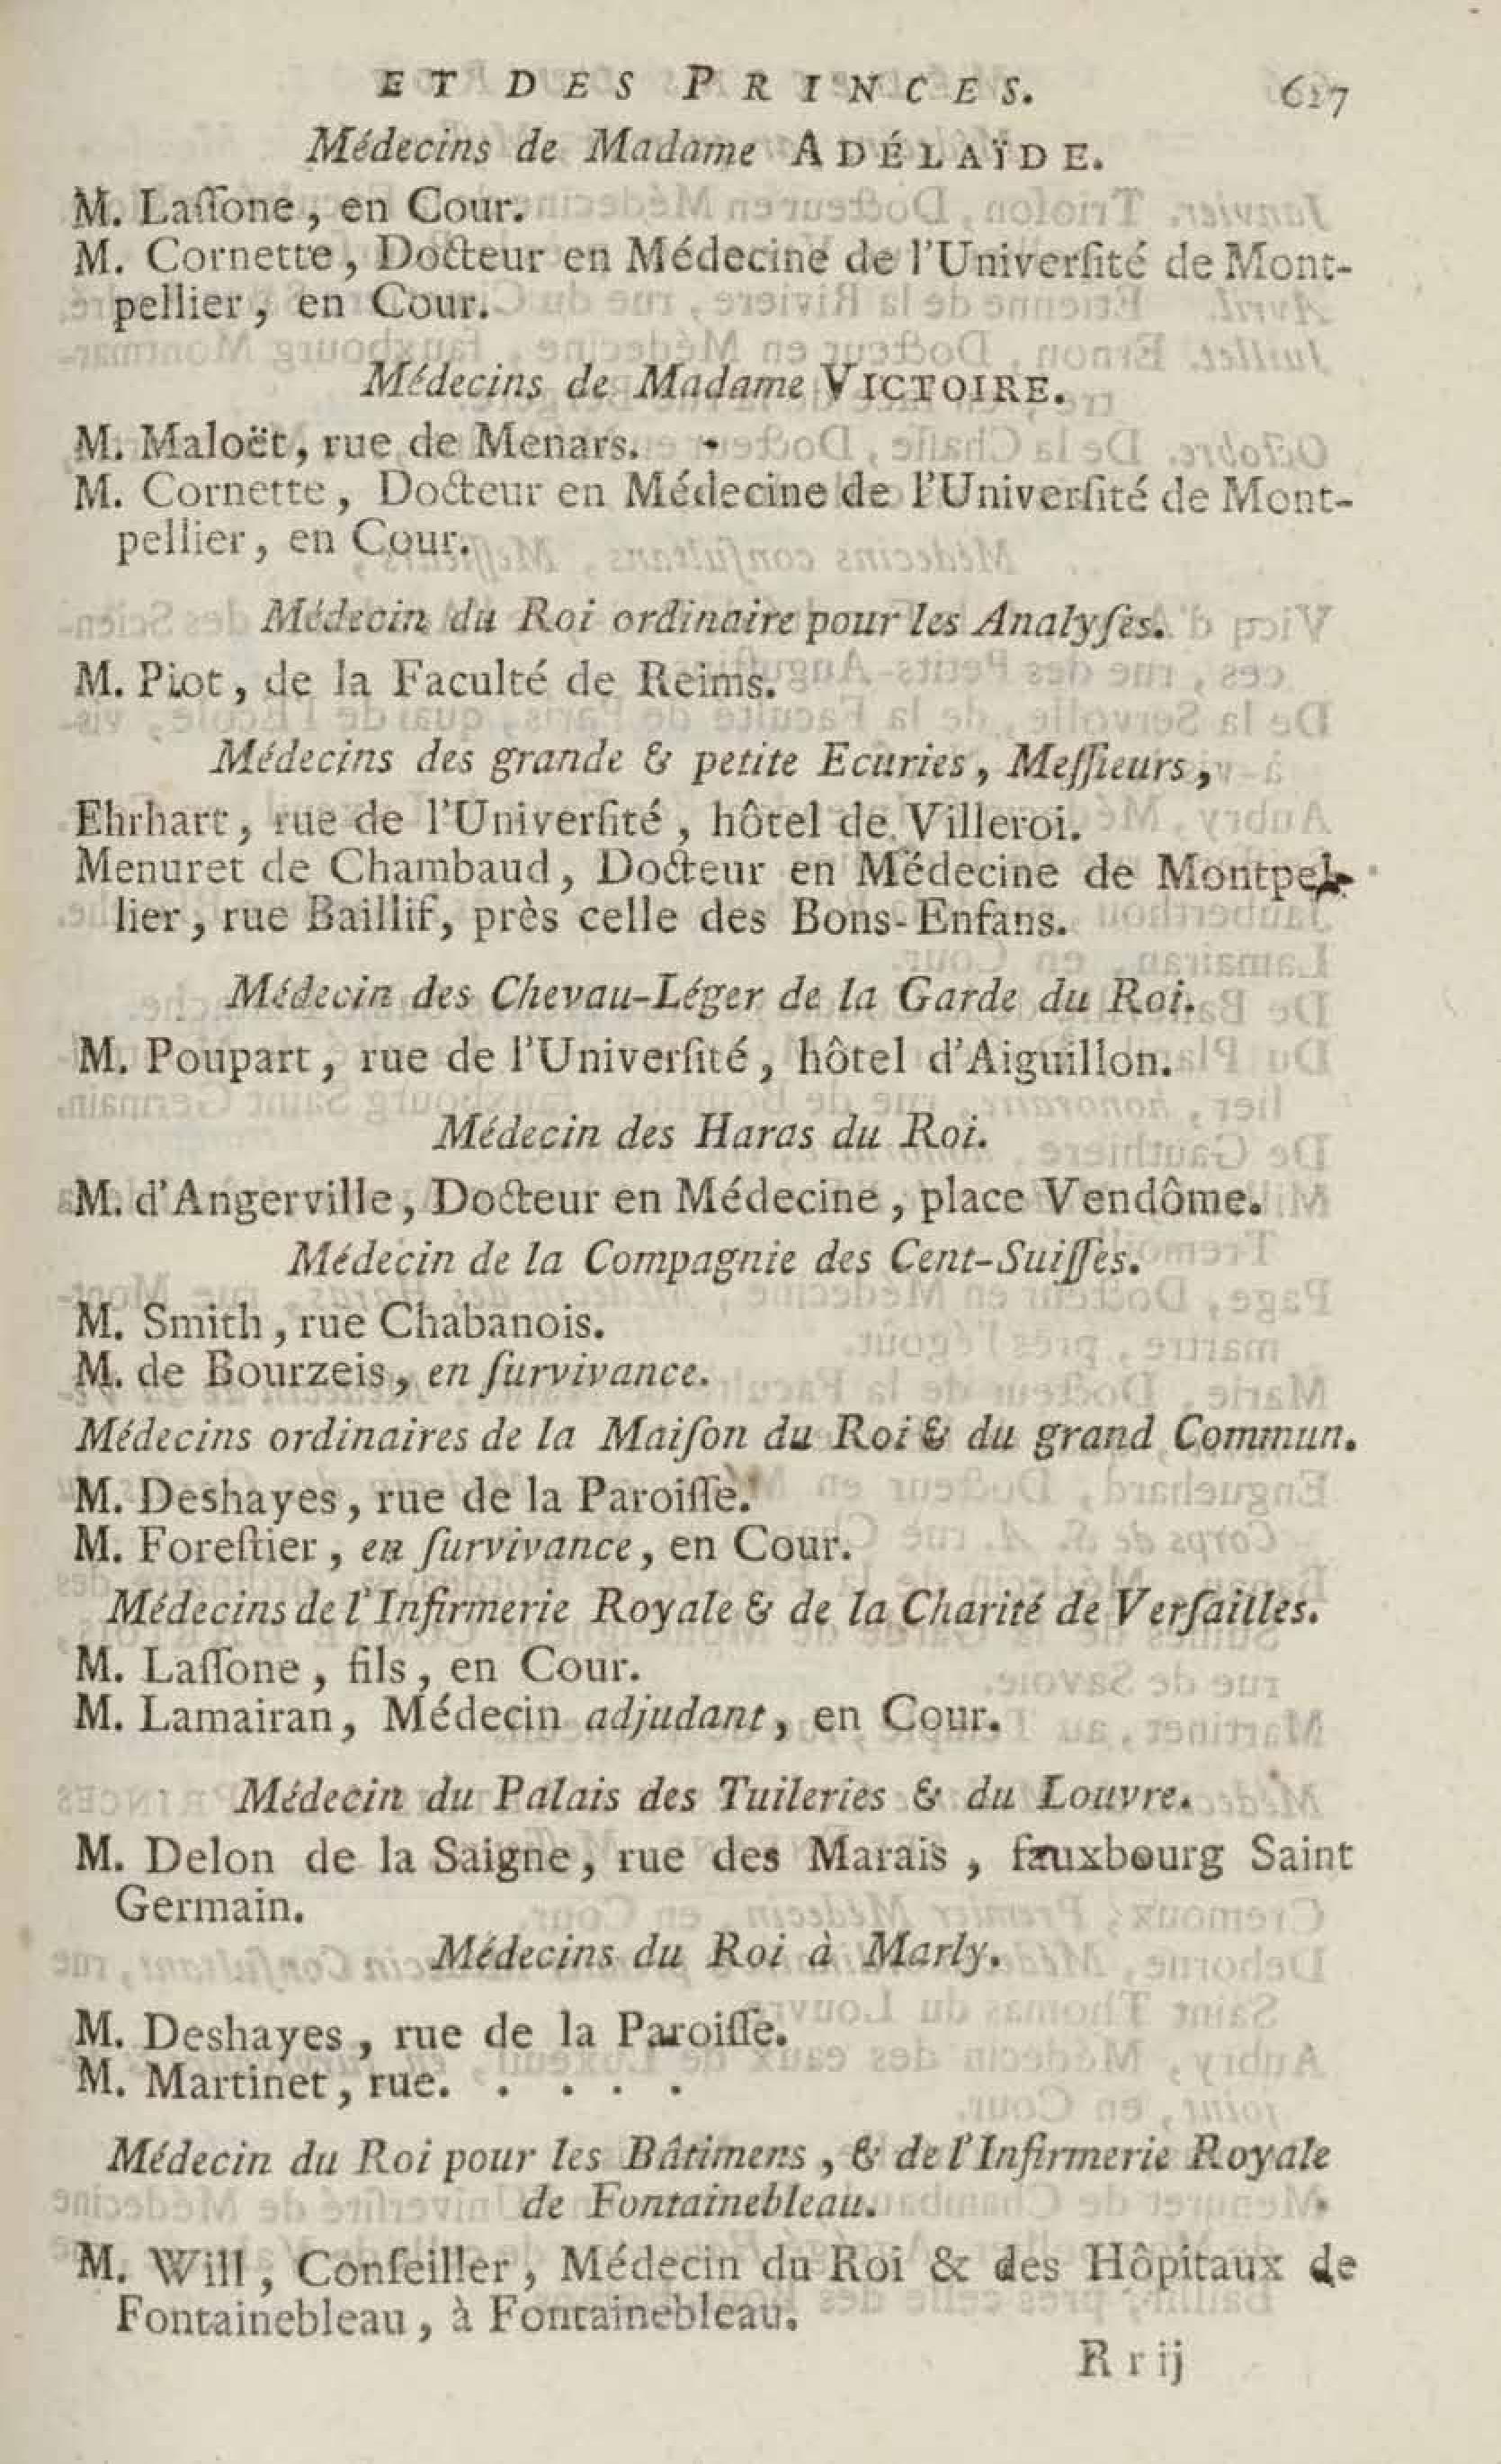 ET DES PRINCES. 627
Médecins de Madame ADÉLAÏDE.
M. Laſſone, en Cour.
M. Cornette, Docteur en Médecine de l'Univerſité de Mont-
pellier, en Cour.
Médecins de Madame VICTOIRE.
M. Maloët, rue de Menars.
M. Cornette, Docteur en Médecine de l'Univerſité de Mont-
pellier, en Cour.
Médecin du Roi ordinaire pour les Analyſes.
M. Piot, de la Faculté de Reims.
Médecins des grande & petite Ecuries, Meſſieurs,
Ehrhart, rue de l'Univerſité, hôtel de Villeroi.
Menuret de Chambaud, Docteur en Médecine de Montpel-
lier, rue Baillif, près celle des Bons-Enfans.
Médecin des Chevau-Léger de la Garde du Roi.
M. Poupart, rue de l'Univerſité, hôtel d'Aiguillon.
Médecin des Haras du Roi.
M. d'Angerville, Docteur en Médecine, place Vendôme.
Médecin de la Compagnie des Cent-Suiſſes.
M. Smith, rue Chabanois.
M. de Bourzeis, en ſurvivance.
Médecins ordinaires de la Maiſon du Roi & du grand Commun.
M. Deshayes, rue de la Paroiſſe.
M. Foreſtier, en ſurvivance, en Cour.
Médecins de l'Infirmerie Royale & de la Charité de Verſailles.
M. Laſſone, fils, en Cour.
M. Lamairan, Médecin adjudant, en Cour.
Médecin du Palais des Tuileries & du Louvre.
M. Delon de la Saigne, rue des Marais, fauxbourg Saint
Germain.
Médecins du Roi à Marly.
M. Deshayes, rue de la Paroiſſe.
M. Martinet, rue. . . . . .
Médecin du Roi pour les Bâtimens, & de l'Infirmerie Royale
de Fontainebleau.
M. Will, Conſeiller, Médecin du Roi & des Hôpitaux de
Fontainebleau, à Fontainebleau.
R r ij